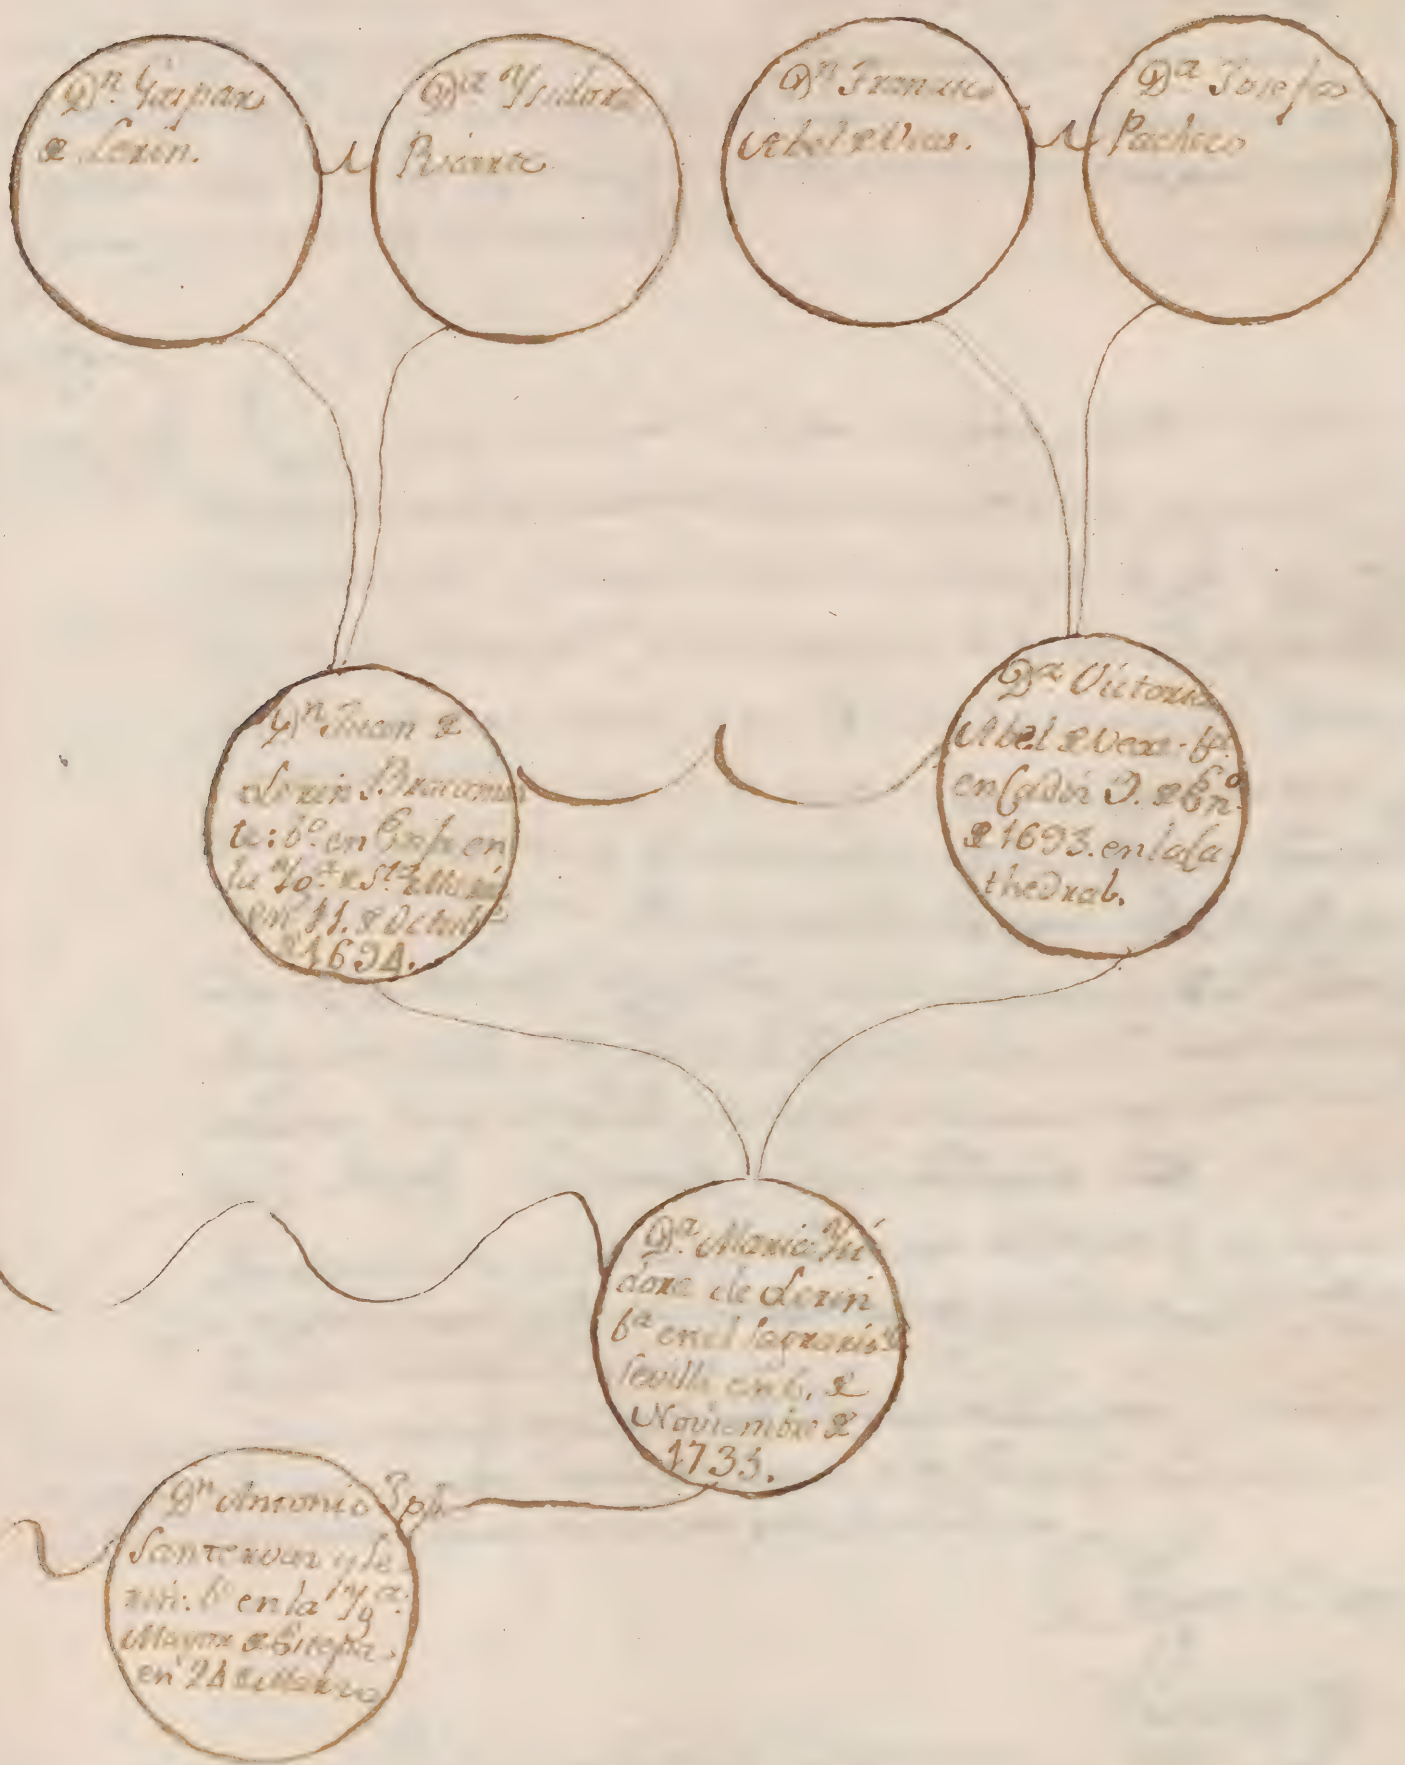 Dn. Gaspar
de Lerin.
Da Ysidora
Dn Francisco
Abel de Veas.
Da Josefa
Pacheco
Dn Juan de
Lerin Bracamon
te: bo. en en
la Ya. de Sta. Maria
en 11. de Octubre
de 1694.
Da Victoria
Abel de Veas. ba.
en Cadiz 9. de Eno.
de 1693. en la Ca
thedral.
Da. Maria Ysi
dora de Lerin
ba en el Sagrario de
Sevilla en 6. de
Noviembre de
1735.
Dn Antonio Jph
Santervan y Le
rin: bo en la Yga.
Mayor de Estepa.
en 24 de Marzo